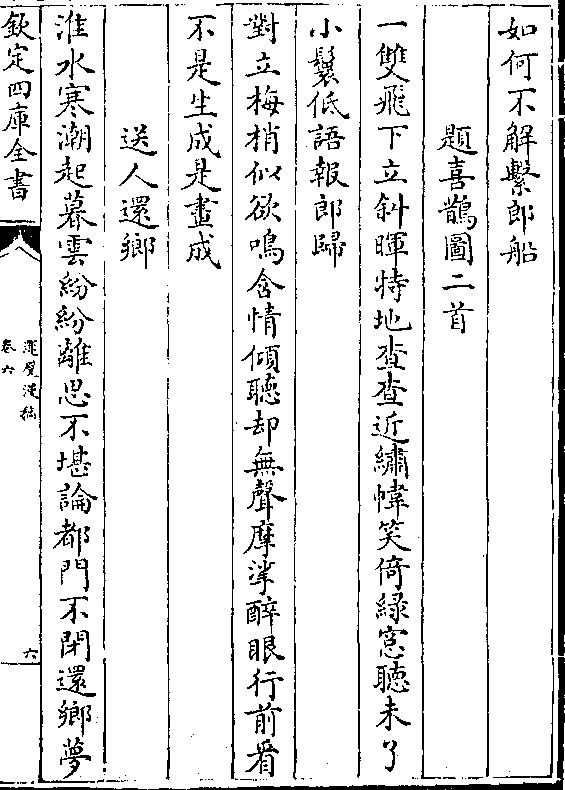 如何不解繫郎船
題喜鵲圖二首
一雙飛下立斜暉特地查查近繡幃笑倚綠窓聽未了
小鬟低語報郎歸
對立梅梢似欲鳴含情傾聽却無聲摩挲醉眼行前看
不是生成是畫成
送人還鄉
淮水寒潮起暮雲紛紛離思不堪論都門不閉還鄉夢
欽定四庫全書
卷六
六